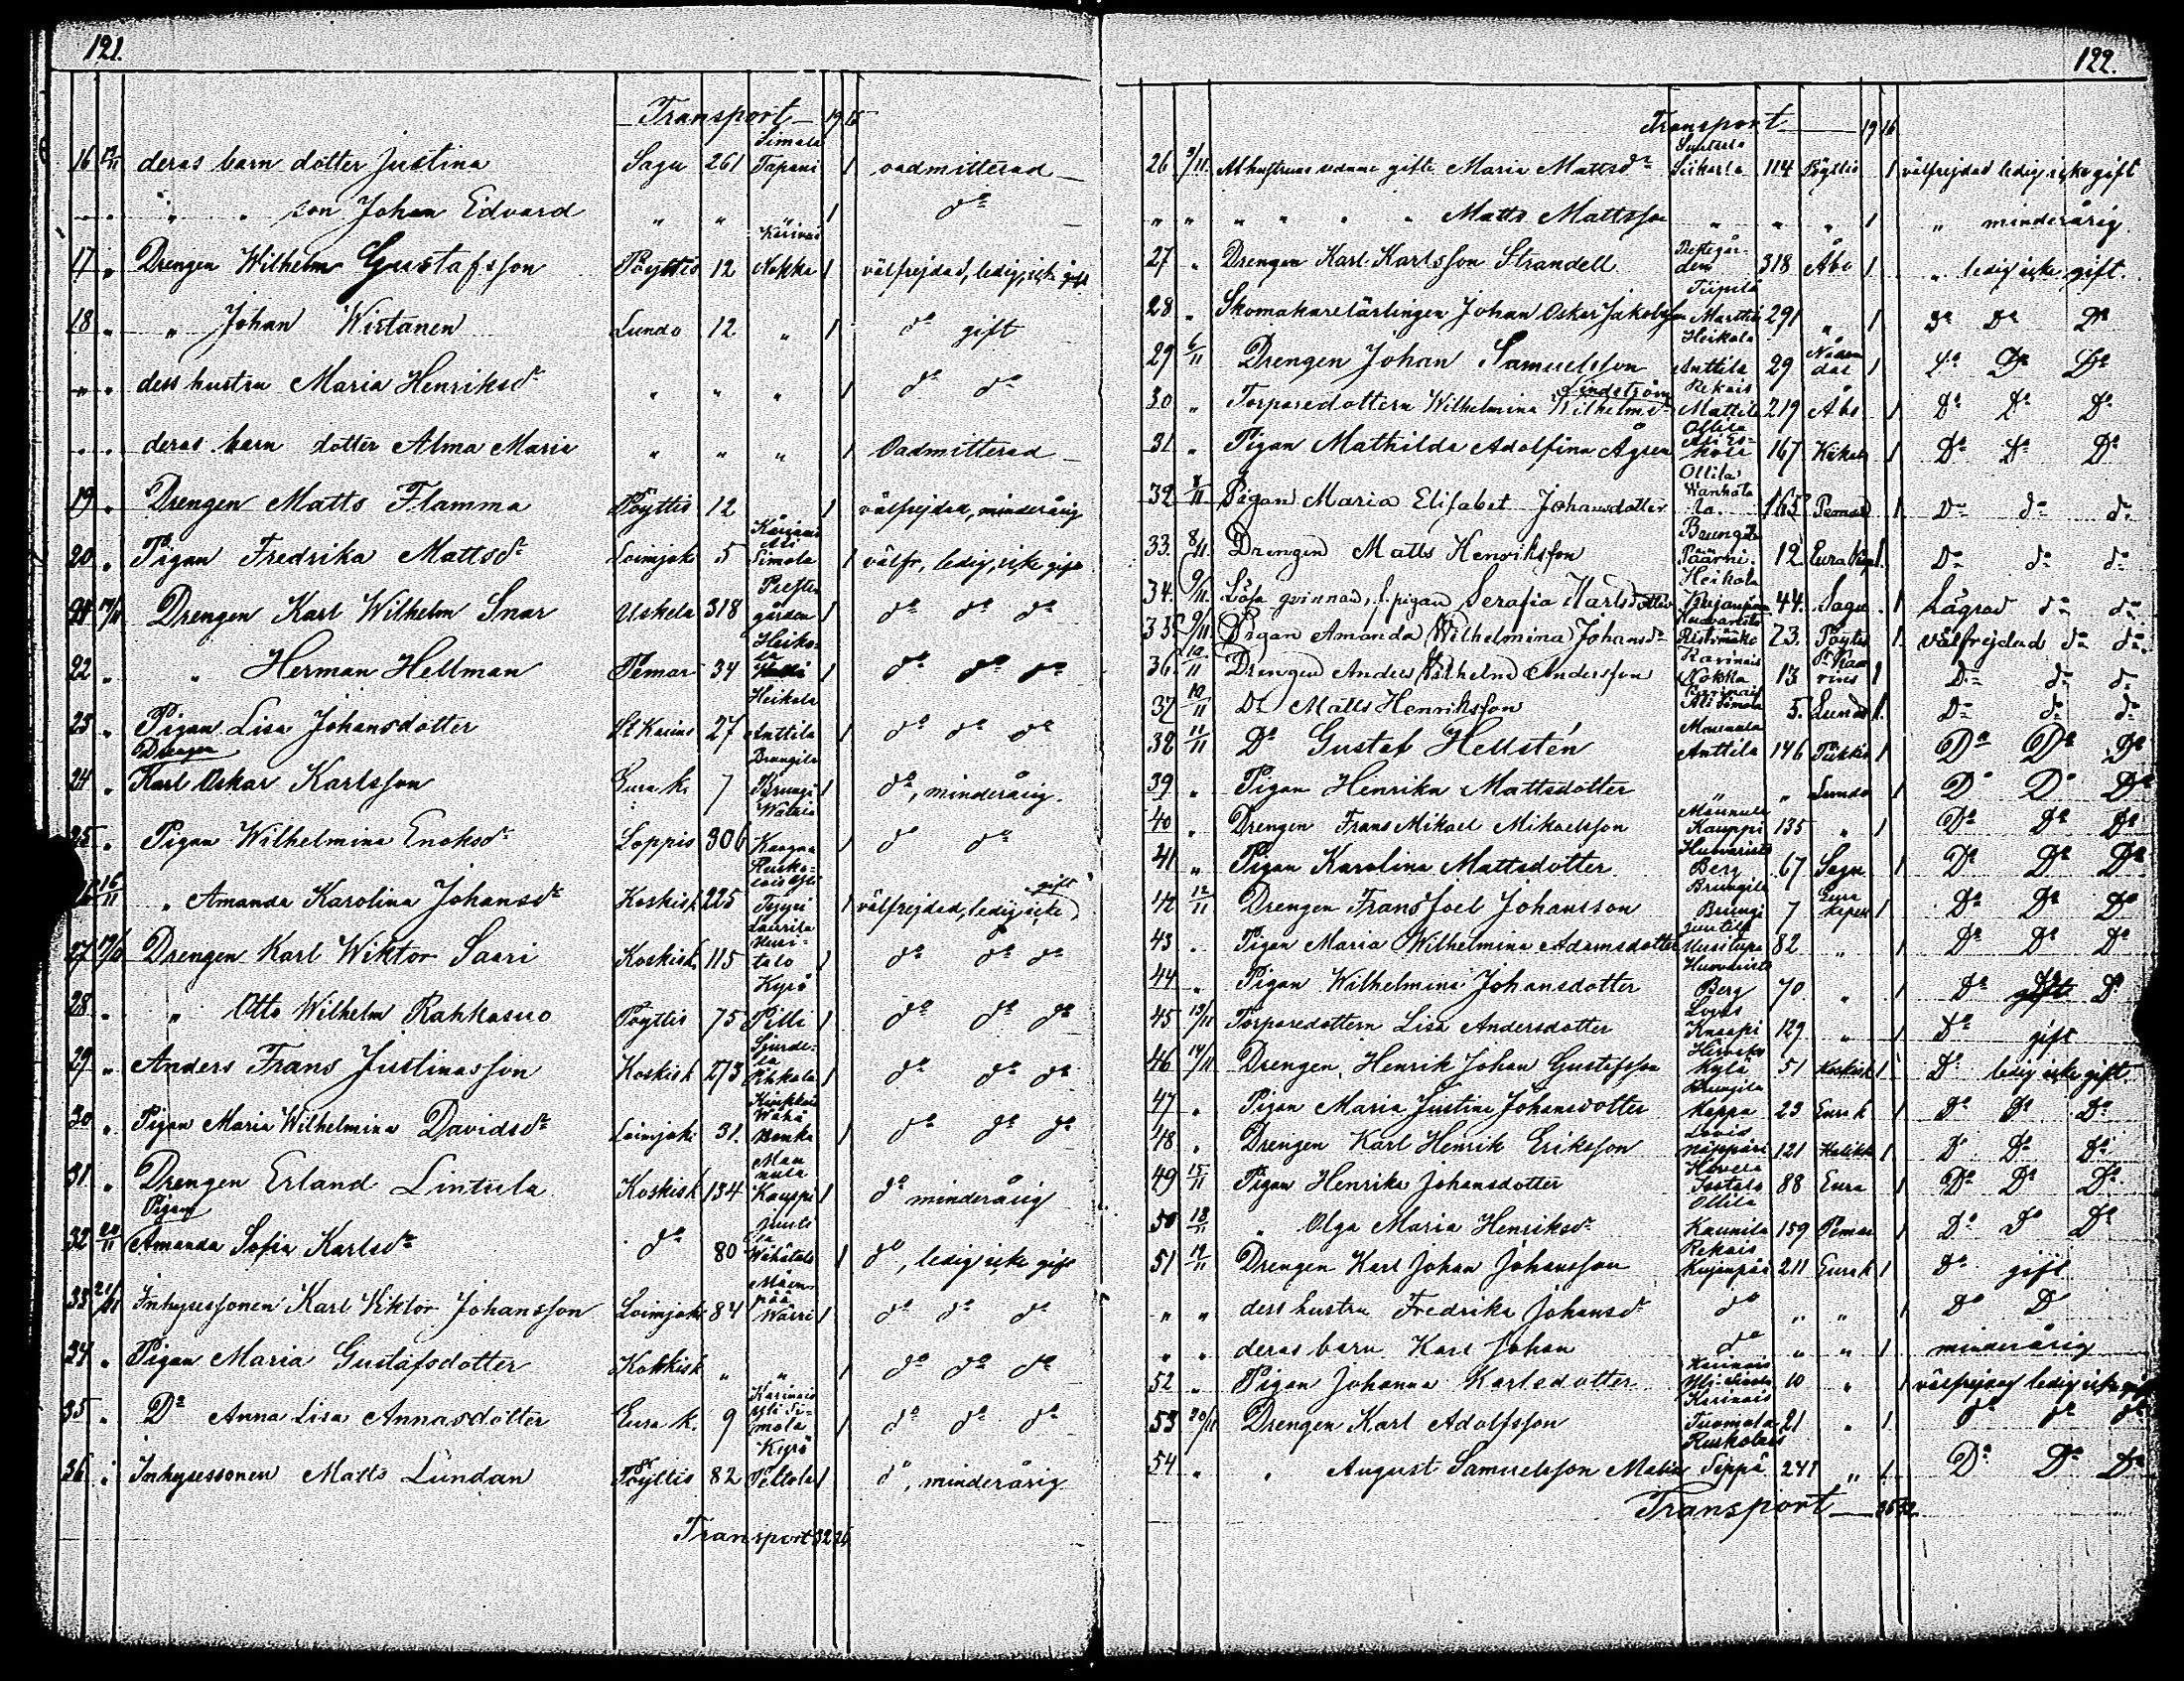 121.
Transport 19 15
16 12/11 deras barn dotter Justina Sagu 261 Simola Tapani 1 oadmitterad
" " " " son Johan Edvard " " 1 do
17 " Drengen Wilhelm Gustafsson Pöyttis 12 Karinais Nokka 1 välfrejdad, ledig, icke gift
18 " " Johan Wirtanen Lundo 12 " 1 do gift
" " dess hustru Maria Henriksdr " " " 1 do do
" " deras barn dotter Alma Maria " " " 1 Oadmitterad
19 " Drengen Matts Flamma Pöyttis 12 1 välfrejdad, minderårig
20 " Pigan Fredrika Mattsdr Loimjoki 5 Karinais Ali Simola 1 välfr, ledig, icke gift
21 14/11 Drengen Karl Wilhelm Snar Uskela 318 Prestgården 1 do do do
22 " " Herman Hellman Pemar 34 Heikola 1 do do do
23 " Pigan Lisa Johansdotter St Karins 27 Heikola Anttila 1 do do do
24 " Drengen Karl Oskar Karlsson Eura k. 7 Brungila Brungi 1 do, minderårig.
25 " Pigan Wilhelmina Enoksdr Loppis 306 1 do do
16/11 " Amanda Karolina Johansdr Koskis k 225 1 välfrejdad, ledig icke gift
27 19/11 Drengen Karl Wiktor Saari Koskis k. 115 Laurila Uusitalo 1 do do do
28 " " Otto Wilhelm Rahkasuo Pöyttis 75 Kyrö Pilli 1 do do do
29 " Anders Frans Justinasson Koskis k 273 Pihkala 1 do do do
30 " Pigan Maria Wilhelmina Davidsdr Loimjoki 31. 1 do do do
31 " Drengen Erland Lintula Koskis k 134 Mannula Kauppi 1 do minderårig
32 20/11 Pigan Amanda Sofia Karlsdr do 80 Juntila Wähätalo 1 do, ledig icke gift
33 21/11 Inhysessonen Karl Viktor Johansson Loimjoki 84 Mäenpää Warri 1 do do do
34 " Pigan Maria Gustafsdotter Koskis k " " 1 do do do
35 " Do Anna Lisa Annasdotter Eura k. 9 Karinais Yli Simola 1 do do do
36 " Inhysessonen Matts Lundan Pöyttis 82 Kyrö Peltola 1 do, minderårig
Transport 32 26
122.
Transport 19 16
26 3/11 Maria Mattsdr 114 Pöyttis 1 välfrejdad ledig icke gift
" " " " " " Matts Mattsson " " " 1 " minderårig
27 " Drengen Karl Karlsson Strandell Prestegården 318 Åbo 1 " ledig icke gift.
28 " Skomakarelärlingen Johan Oskar Jakobsson Marttila 291 " 1 Do Do Do
29 6/11 Drengen Johan Samuelsson Heikola Anttila 29 Nådendal 1 Do Do Do
30 " Torparedottern Wilhelmina Wilhelmsdr Lindström Rekais Mattila 219 Åbo 1 Do Do Do
31 " Pigan Mathilda Adolfina Ågren Ollila 167 1 Do Do Do
32 8/11 Pigan Maria Elisabet Johansdotter Ollila Wanhatalo. 165 Pemar 1 Do do do
33. 8/11. Drengen Matts Henriksson Brungila Päärni. 12. Eura 1. Do do do
34. 9/11. Lösa qvinnan, f. pigan Serafia Karlsdotter Heikola 44. Sagu 1 Lägrad do do
35 9/11 Pigan Amanda Wilhelmina Johansdr Ristimäki 73. Pöytis 1 välfrejdad do do.
36. 10/11 Drengen Anders Wilhelm Andersson Karinais Nokka 13 St Karins 1 Do do do
37 10/11 Do Matts Henriksson Karinais Ali Simola 5. Lundo 1. Do do do
38 11/11 Do Gustaf Hellstén Mannula Anttila 146 Piikkis 1 Do Do Do
39 " Pigan Henrika Mattsdotter " " Lundo 1 Do Do Do
40 " Drengen Frans Mikael Mikaelsson Mannula Kauppi 135 " 1 Do Do Do
41 " Pigan Karolina Mattsdotter Huovarista Berg 67 Sagu 1 Do Do Do
42 12/11 Drengen Frans Joel Johansson Brungila Brungi 7 Eura kapell 1 Do Do Do
43 " Pigan Maria Wilhelmina Adamsdotter Juntila Uusitupa 82 " 1 Do Do Do
44 " Pigan Wilhelmina Johansdotter Huovarista Berg 70 " 1 Do Do Do
45 13/11 Torparedottern Lisa Andersdotter Lovis Knaapi 129 " 1 Do gift
46 14/11 Drengen Henrik Johan Gustafsson Kylä 51 Koskis k 1 Do ledig icke gift.
47 " Pigan Maria Justina Johansdotter Brungila Kappa 23 Eura k 1 Do Do Do
48 " Drengen Karl Henrik Eriksson Lovis Näppäri 121 Halikko 1 Do Do Do
49 15/11 Pigan Henrika Johansdotter 88 Eura 1 Do Do Do
50 18/11 " Olga Maria Henriksdr Ollila Kaunila 159 Pemar 1 Do Do Do
51 19/11 Drengen Karl Johan Johansson Rekais Kujanpää 211 Eura k 1 Do gift
" " dess hustru Fredrika Johansdr do " " 1 Do Do
" " deras barn Karl Johan do " " 1 minderårig
52 " Pigan Johanna Karlsdotter Karinais Yli Simola 10 " 1 välfrejdad ledig icke gift
53 20/11 Drengen Karl Adolfsson Karinais Tuomola 21 " 1 do do do
54 " " August Samuelsson Malin Ruskolais Seppä 241 " 1 Do Do Do
Transport 36 32